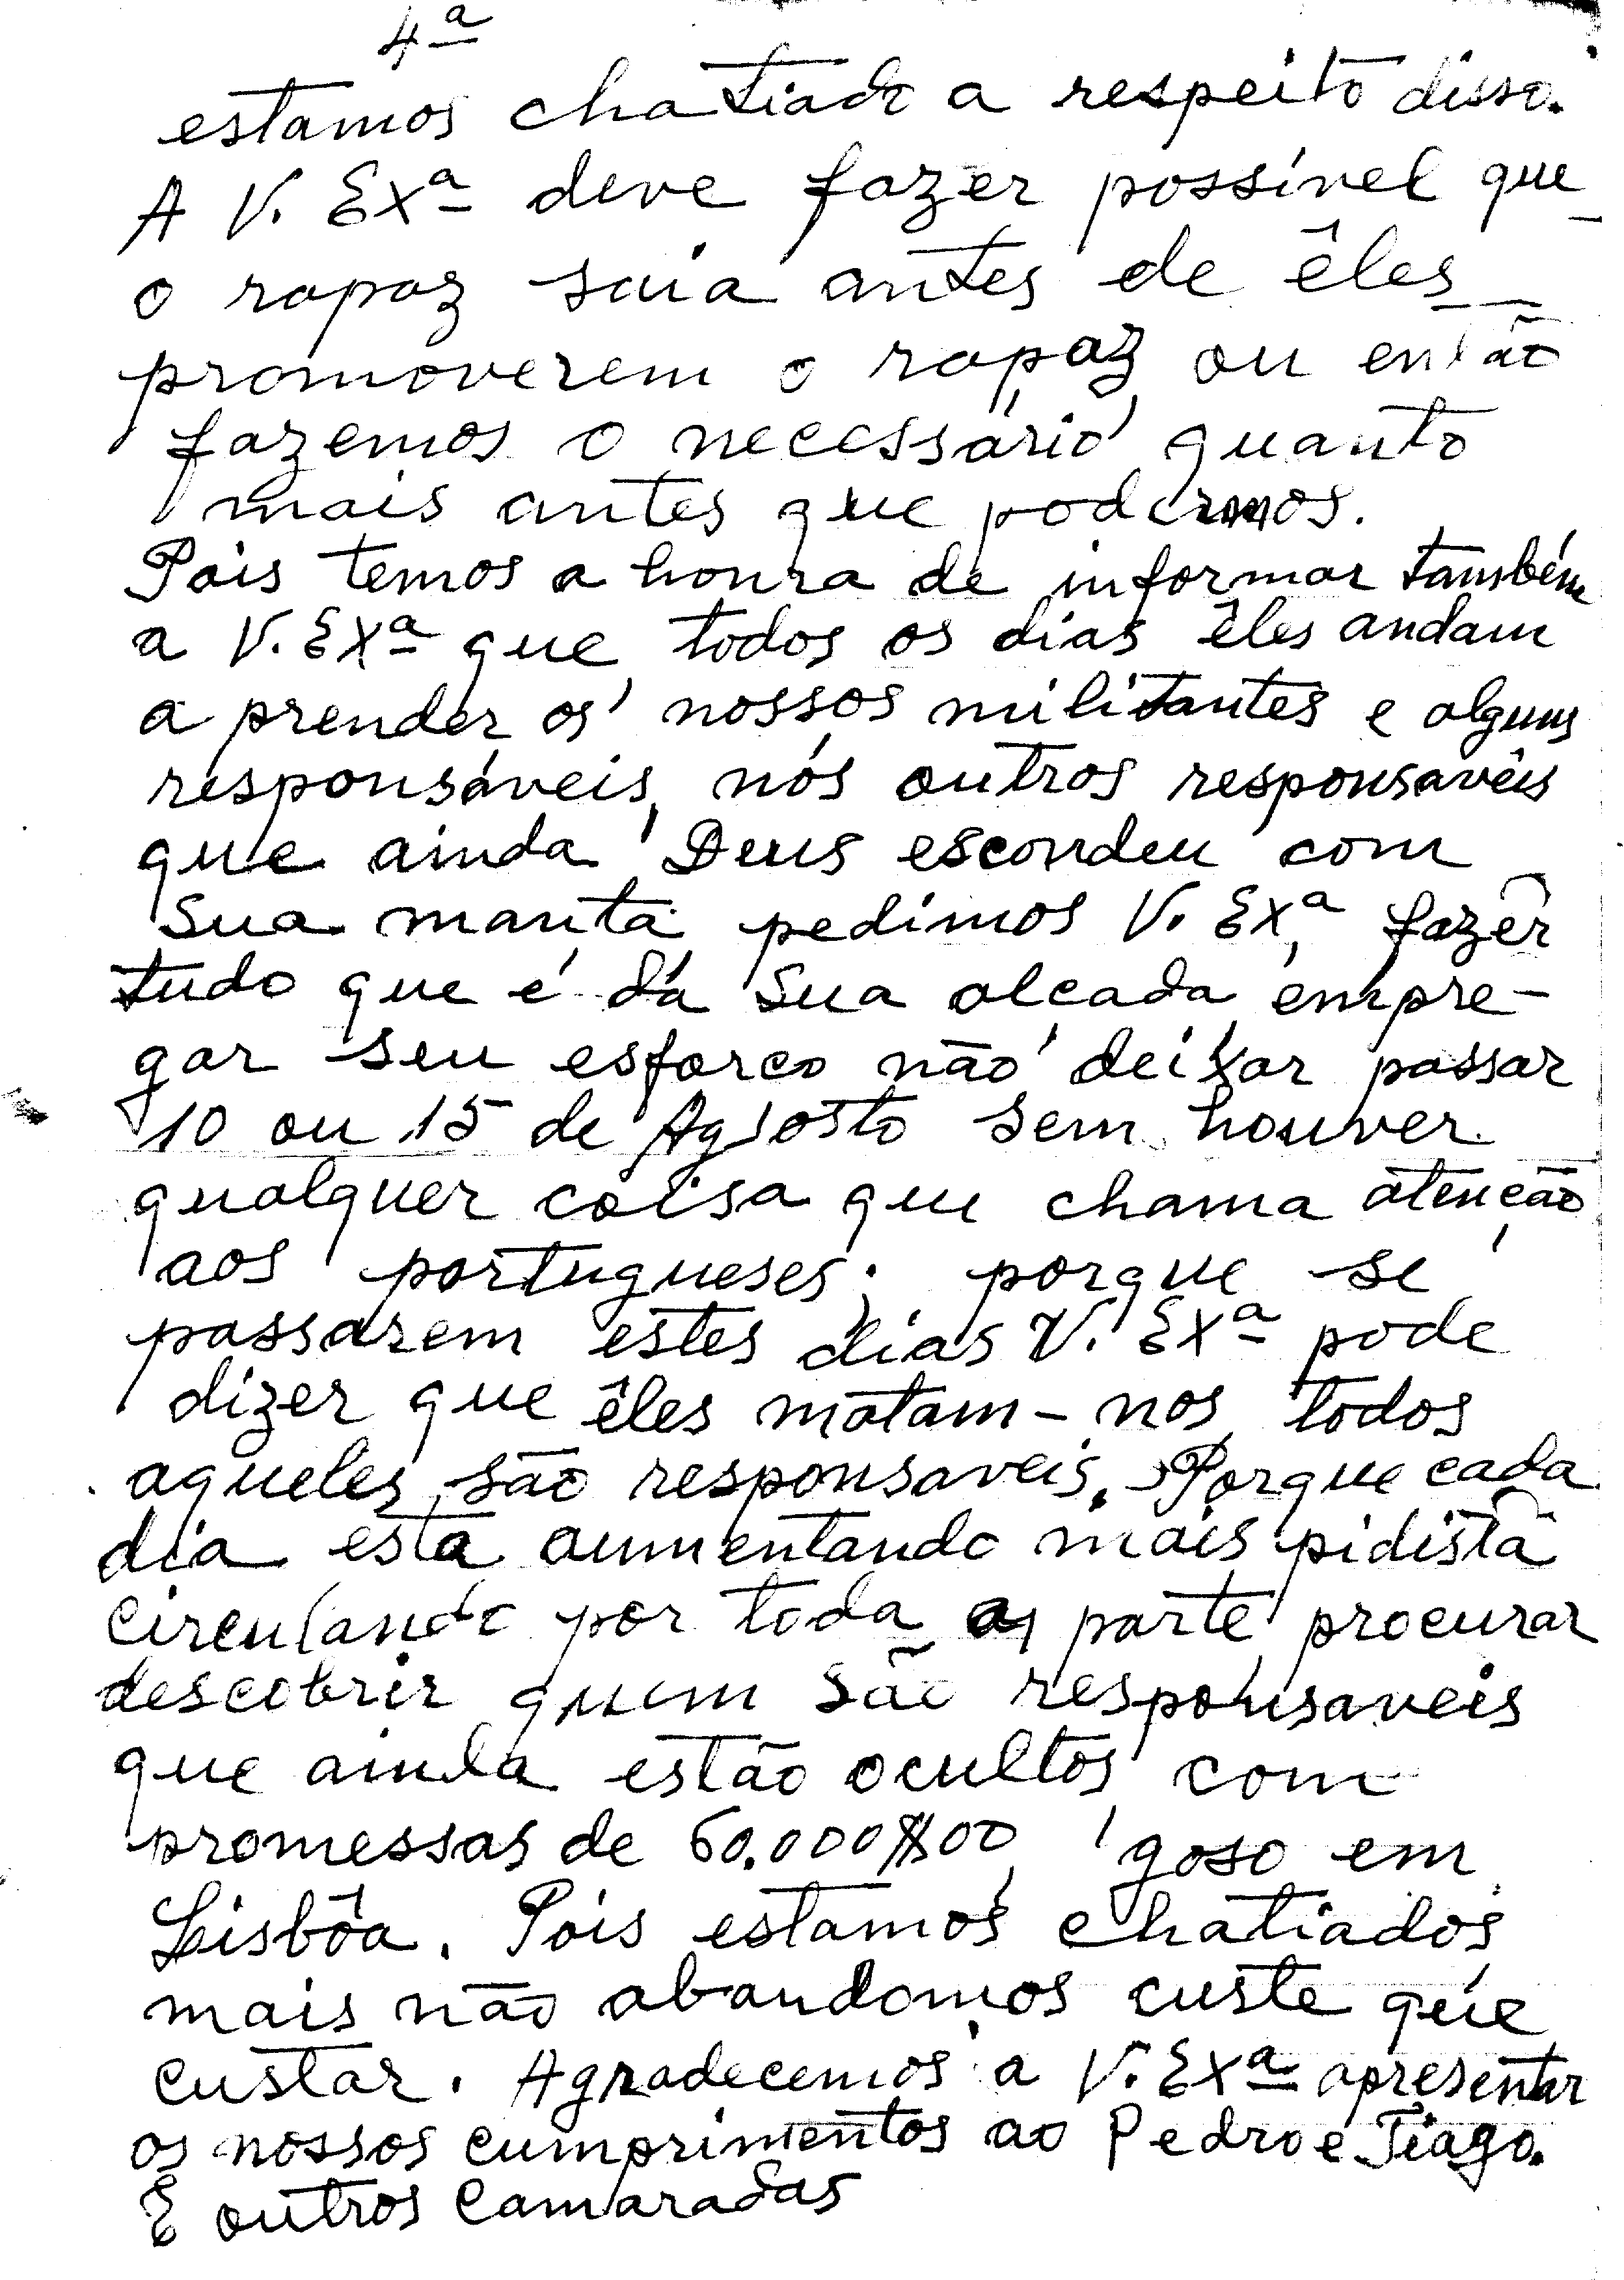 4ª
estamos chatiado a respeito disso.
A V. Exª deve fazer possível que
o rapaz saia antes de êles
promoverem o rapaz ou então
fazemos o necessário quanto
mais antes que podermos.
Pois temos a honra de informar também
a V. Exª que todos os dias êles andam
a prender os nossos militantes e alguns
responsáveis, nós outros responsavêis
que ainda Deus escondeu com
Sua manta pedimos V. Exª, fazêr
tudo que é da Sua alçada empre-
gar seu esforço não deixar passar
10 ou 15 de Agosto sem houver
qualquer coisa que chama atenção
aos portugueses; porque se
passarem estes dias V. Exª pode
dizer que êles matam-nos todos
aqueles são responsaveis. Porque cada
dia esta aumentando mais pidista
circulando por toda a parte procurar
descobrir quem são responsaveis
que ainda estão ocultos com
promessas de 60.000$00, goso em
Lisbôa. Pois estamos chatiados
mais não abandomos custe que
custar. Agradecemos a V. Exª apresentar
os nossos cumprimentos ao Pedro e Tiago.
E outros Camaradas